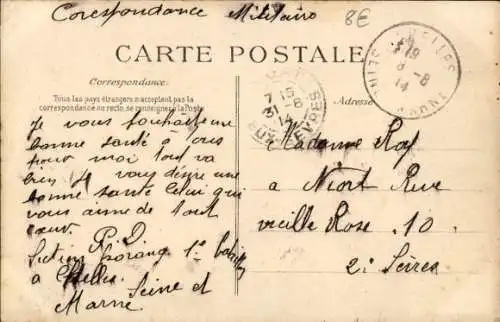 Corespondance Militaire
8€
CARTE POSTALE
Correspondance
Tous les pays étrangers n'acceptent pas la
correspondance au recto, se renseigner à la Poste
Adresse
7 15
31-8
14
8-8
14
Je vous souhaite une
bonne santé à tous
pour moi tout va
bien Je vous désire une
bonne santé Celui qui
vous aime de tout
cœur.
P. D.
Section 1e
à Chelles
Seine et
Marne
Madame Roy
a Niort Rue
vieille Rose 10.
2: Sèvres